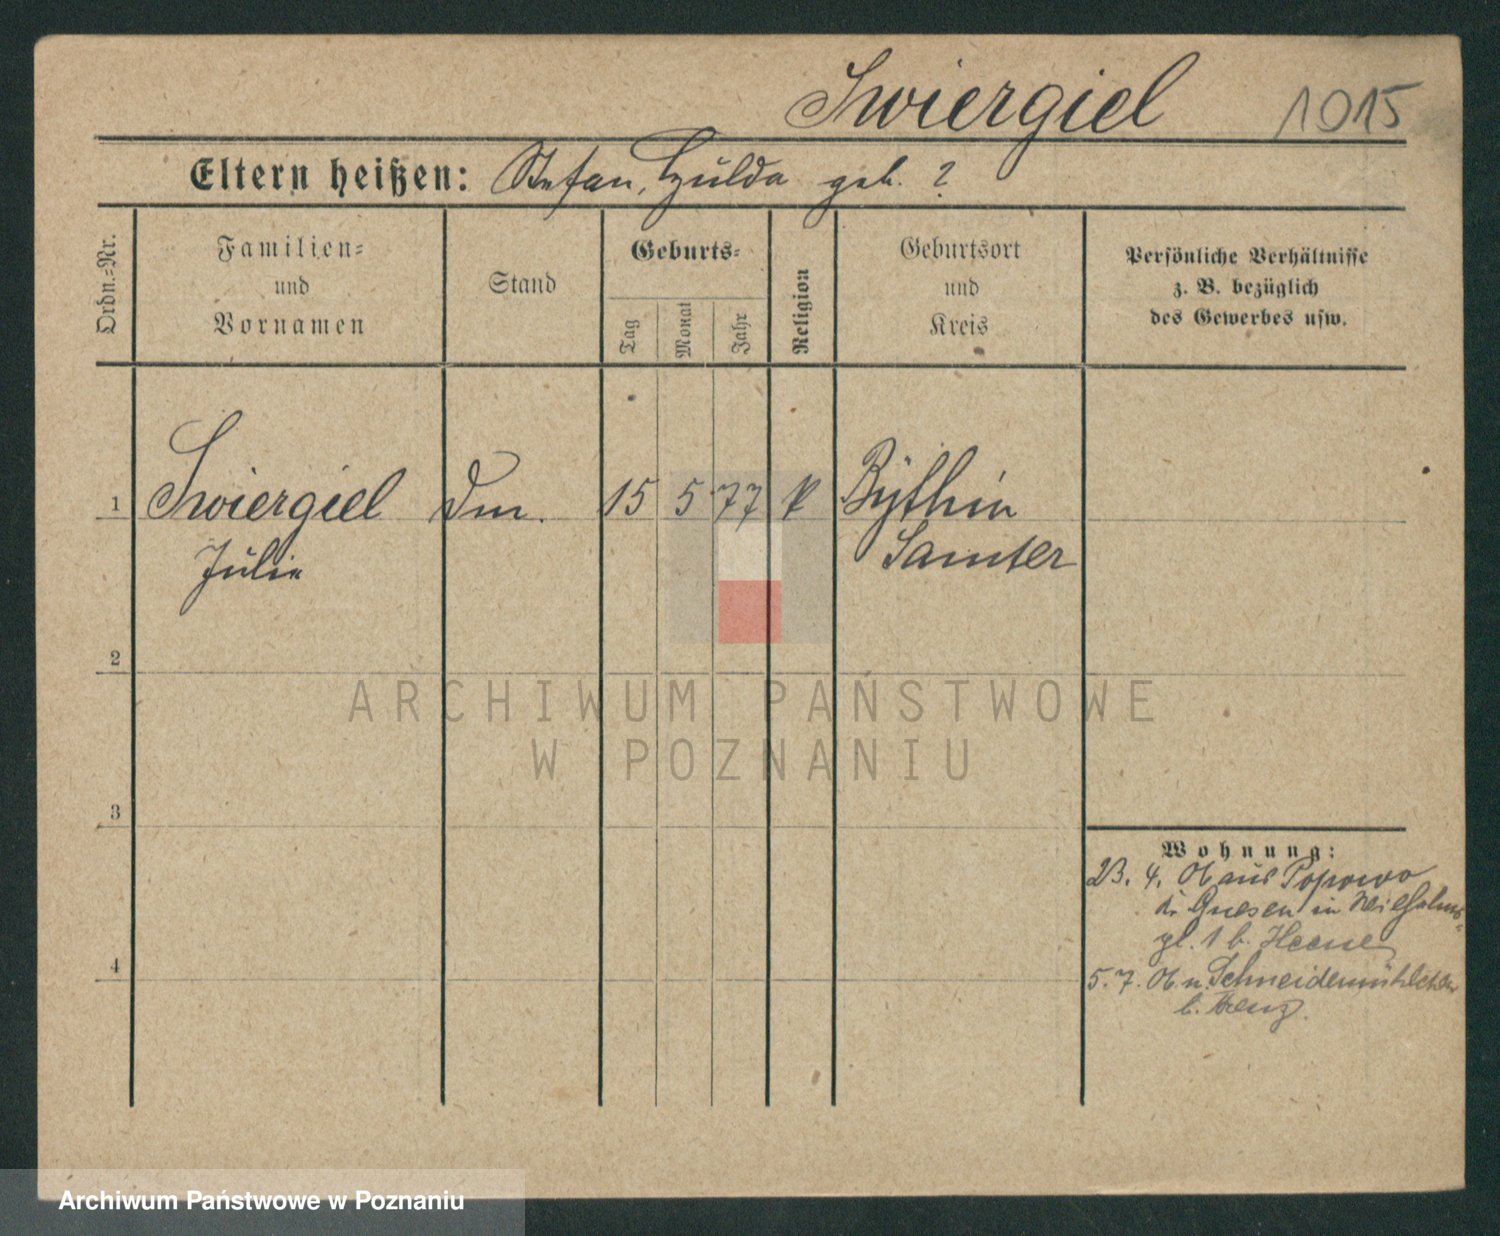 Swiergiel 1015
Eltern heißen: Stefan, Hulda geb. ?
Ordn.=Nr.
Familien=
und
Vornamen
Stand
Geburts=
Tag
Monat
Jahr
Religion
Geburtsort
und
Kreis
Persönliche Verhältnisse
z. B. bezüglich
des Gewerbes usw.
1 Swiergiel Dm. 15 5 77 k Bythin
Julie Samter
2
3
4
Wohnung:
23. 4. 06 aus Popowo
Kr. Gnesen in Wilhelms-
pl. 1 b. Heene
5. 7. 06 n. Schneidemühlchen
b.
ARCHIWUM PAŃSTWOWE
W POZNANIU
Archiwum Państwowe w Poznaniu